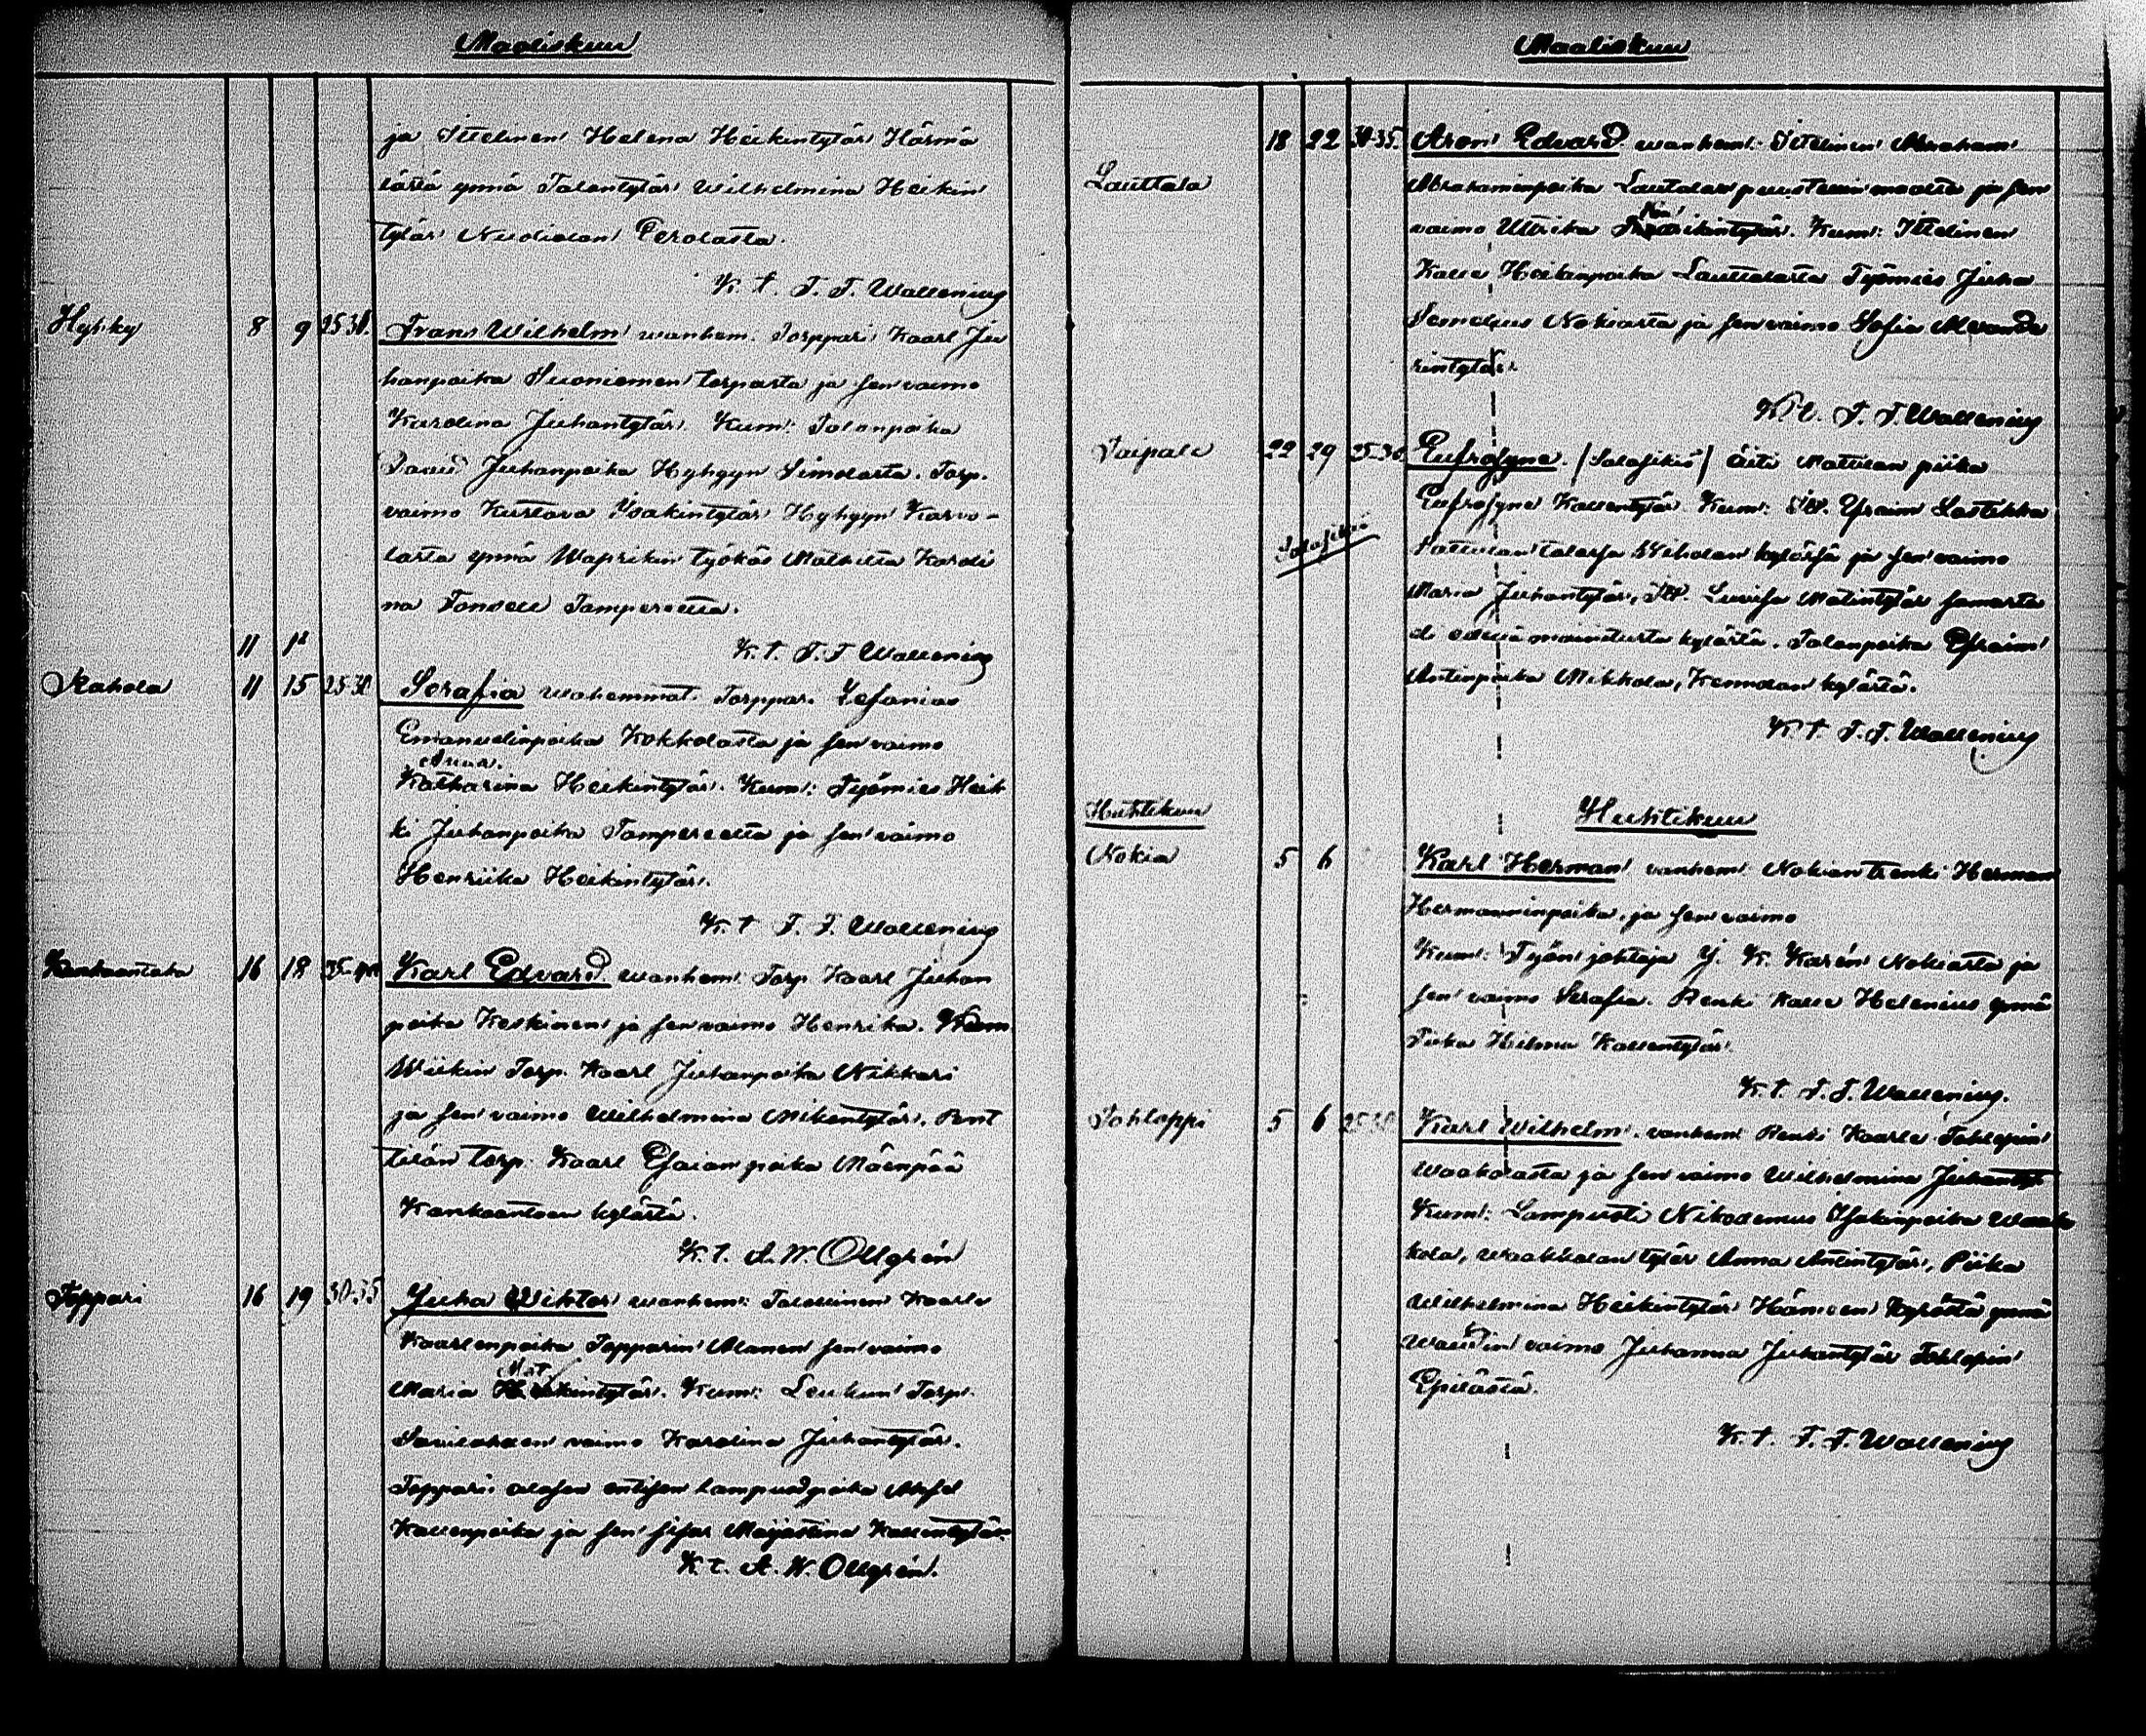 Maaliskuu
ja Ittelinen Helena Heikintytär Härmä
lästä ynnä Talontytär Wilhelmina Heikin
tytär Nuolialan Perolasta.
K. t. F. F. Wallenius
Hyhky 8 9 25.30. Frans Wilhelm wanhem. Torppari Kaarl Ju
hanpoika Suoniemen torpasta ja sen vaimo
Karolina Juhantytär. Kum: Talonpoika
David Juhanpoika Hyhgyn Simolasta. Torp.
vaimo Kustava Isakintytär Hyhgyn Karvo-
lasta ynnä Waprikin työkäs Mathilta Karoli
na Fonsell Tampereelta.
11 12 K. t. F. F. Wallenius
Rahola 11 15 25.30 Serafia wahemmat Torppari Zefanias
Emanuelinpoika Kokkolasta ja sen vaimo
Anna.
Katharina Heikintytär. Kum: Työmies Heik
ki Juhanpoika Tampereelta ja sen vaimo
Henriika Heikintytär.
K. t F. F. Wallenius
Kankaantaka 16 18 35-40 Karl Edvard wanhem: Torp. Kaarl Juhan
poika Keskinen ja sen vaimo Henrika. Kum
Wiikin Torp. Kaarl Juhanpoika Nikkari
ja sen vaimo Wilhelmina Mikentytär. Pent
tilän torp. Kaarl Esaianpoika Mäenpää
Kankaantaan kylästä.
K. t. A. W. Ollgrén
Toppari 16 19 30-35 Juha Wihtor wanhem: Talollinen Kaarle
Kaarlenpoika Topparin Alanen sen vaimo
Mat
Maria kintytär. Kum: Leukun Torp.
Savilahden vaimo Karolina Juhantytär.
Toppari alasen entisen lampuodpoika Aksel
Kallenpoika ja sen sisar Maijastina Kallentytär.
K. t. A. W. Ollgrén.
Maaliskuu
18 22 30-35. Aron Edvard wanhem: Ittelinen Abraham
Lauttala Abrahaminpoika Lautalan puustellin maalta ja sen
vaimo Ulrika kintytär. Kum: Ittelinen
Kalle Heikinpoika Lauttalasta Työmies Juha
Nokiasta ja sen vaimo Sofia Alexande
rintytär.
K. t. F. F. Wallenius
Taipale 22 29 25.30 Eufrosyne. /Salasikiö/ Äiti Mattilan piika
Eufrosyne Kallentytär. Kum: Itt. Efraim Lastikka
Salasikiö
talossa kylässä ja sen vaimo
Maria Juhantytär, Itt. Luvisa Matintytär samasta
di edellä mainitusta kylästä. Talonpoika Efraim
Antinpoika Mikkola, Kennolan kylästä.
K. t F. F. Wallenius
Huhtikuu
Huhtikuu
Nokia 5 6 Karl Herman vanhem: Nokian trenki Herman
Hermanninpoika. ja sen vaimo
Kum: Työn johtaja J. K. Karén Nokiasta ja
sen vaimo Serafia. Renki Kalle Helenius ynnä
Piika Hilma Kallentytär.
K. t. F. F. Wallenius.
Tohloppi 5 6 25.30 Karl Wilhelm. vanhem: Renki Kaarle Tohlopin
Waakolasta ja sen vaimo Wilhelmina Juhantyt
Kum: Lampusti Nikodemus Isakinpoika Waak
kola, Waakkolan tytär Anna Antintytär, Piika
Wilhelmina Heikintytär Hämeen Kyröstä ynnä
vaimo Juhanna Juhantytär Tohlopin
Epilästä.
K. t. F. F. Wallenius